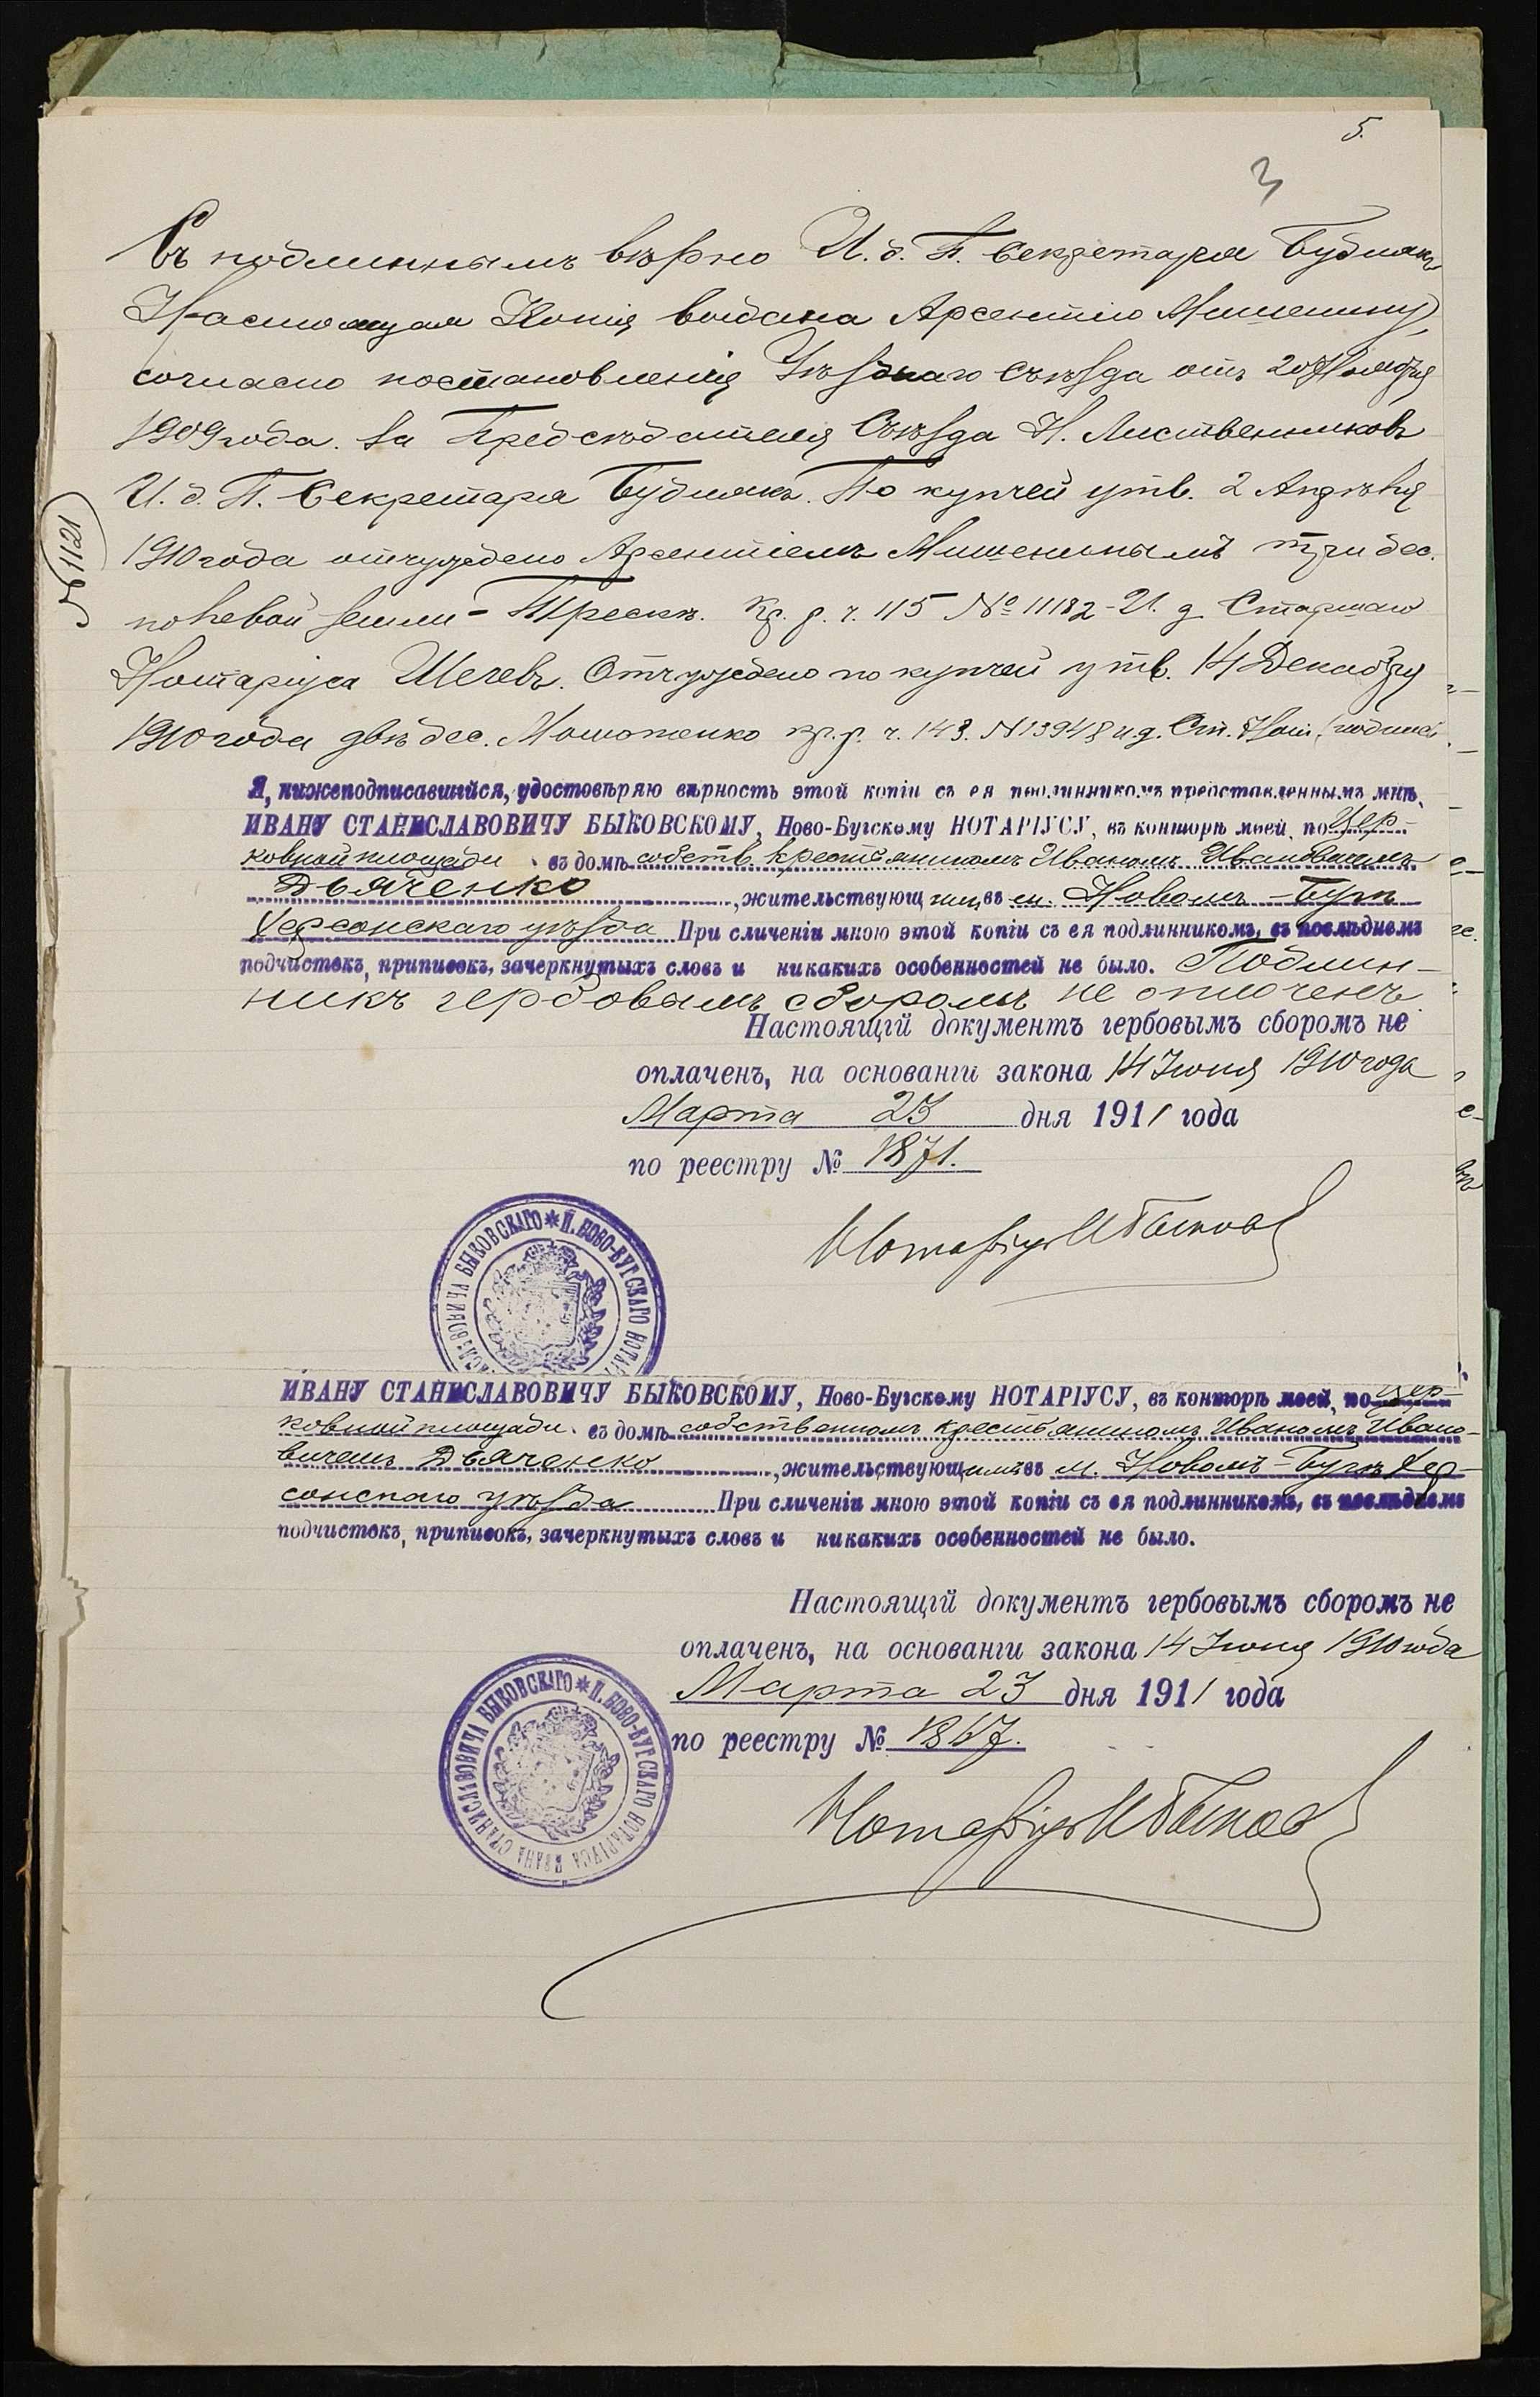 5.
3
Съ подлиннымъ вѣрно И. д. П. Секретаря Будлякъ
Настоящая Копія выдана Арсентію Мишенину,
согласно постановленія Уѣзднаго Съѣзда отъ 20 Ноября
1909 года. За Предсѣдателя Съѣзда Н. Лиственниковъ
И. д. П. Секретаря Будлякъ. По купчей утв. 2 Апрѣля
1910 года отчуждено Арсентіемъ Мишенинымъ три дес.
полевой земли – кр. р. ч. 115 № 11182 – И. д. Старшаго
Нотаріуса Шегевъ. Отчуждено по купчей утв. 14 Декабря
1910 года двѣ дес. кр. р. ч. 143. N 13948 и д. Ст. Нот.
№ 1121
Я, нижеподписавшійся, удостовѣряю вѣрность этой копіи съ ея подлинникомъ представленнымъ мнѣ,
ИВАНУ СТАНИСЛАВОВИЧУ БЫКОВСКОМУ, Ново-Бугскому НОТАРІУСУ, въ конторѣ моей, по Цер-
ковной площади въ домѣ собств. крестьяниномъ Иваномъ Ивановичемъ
Дьяченко, жительствующимъ въ м. Новомъ-Бугѣ
Херсонскаго уѣзда При сличеніи мною этой копіи съ ея подлинникомъ, въ послѣднемъ
подчистокъ, приписокъ, зачеркнутыхъ словъ и никакихъ особенностей не было. Подлин-
никъ гербовымъ сборомъ не оплоченъ
Настоящій документъ гербовымъ сборомъ не
оплаченъ, на основаніи закона 14 Іюня 1910 года
Марта 23 дня 1911 года
по реестру № 1871.
Нотаріусъ И Быков
БЫКОВСКАГО * П. НОВО-БУГСКАГО
ИВАНУ СТАНИСЛАВОВИЧУ БЫКОВСКОМУ, Ново-Бугскому НОТАРІУСУ, въ конторѣ моей, по Цер-
ковной площади. въ домѣ собственномъ крестьяниномъ Иваномъ Ивано-
вичемъ Дьяченко, жительствующимъ въ м. Новомъ-Бугѣ Хер-
сонскаго уѣзда При сличеніи мною этой копіи съ ея подлинникомъ, въ послѣднемъ
подчистокъ, приписокъ, зачеркнутыхъ словъ и никакихъ особенностей не было.
Настоящій документъ гербовымъ сборомъ не
оплаченъ, на основаніи закона 14 Іюня 1910 года
Марта 23 дня 1911 года
по реестру № 1867.
Нотаріусъ И Быков
* П. НОВО-БУГСКАГО НОТАРІУСА ИВАНА СТАНИСЛАВОВИЧА БЫКОВСКАГО